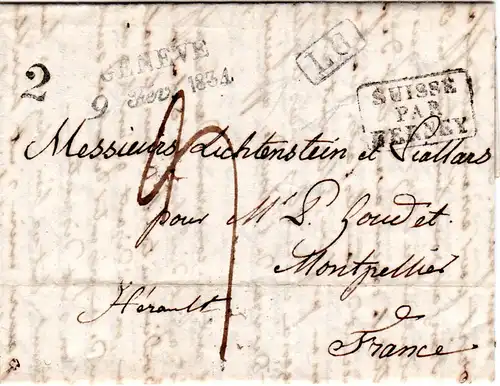 2
GENEVE
9 Févr. 1834
L.G.
SUISSE
PAR
FERNEY
Messieurs Lichtenstein et Viallars
pour Mr. P. Goudet
Montpellier
Hérault.
à
France